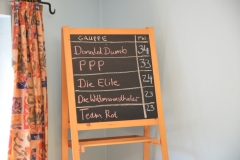 GRUPPE
Donald Dumb 34
PPP 33
Die Elite 24
Die Willmannstaler 23
Team Rot 23